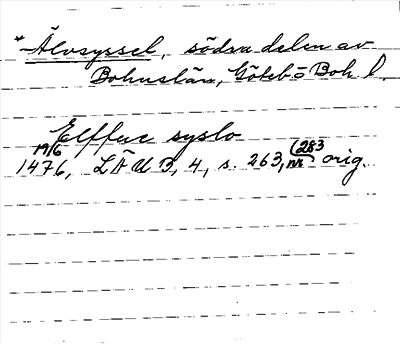 *Älvsyssel, södra delen av
Bohuslän, Göteb o Boh l.
Elffue syslo
19/6
1476, LÄUB, 4, s. 263, nr 283 orig.